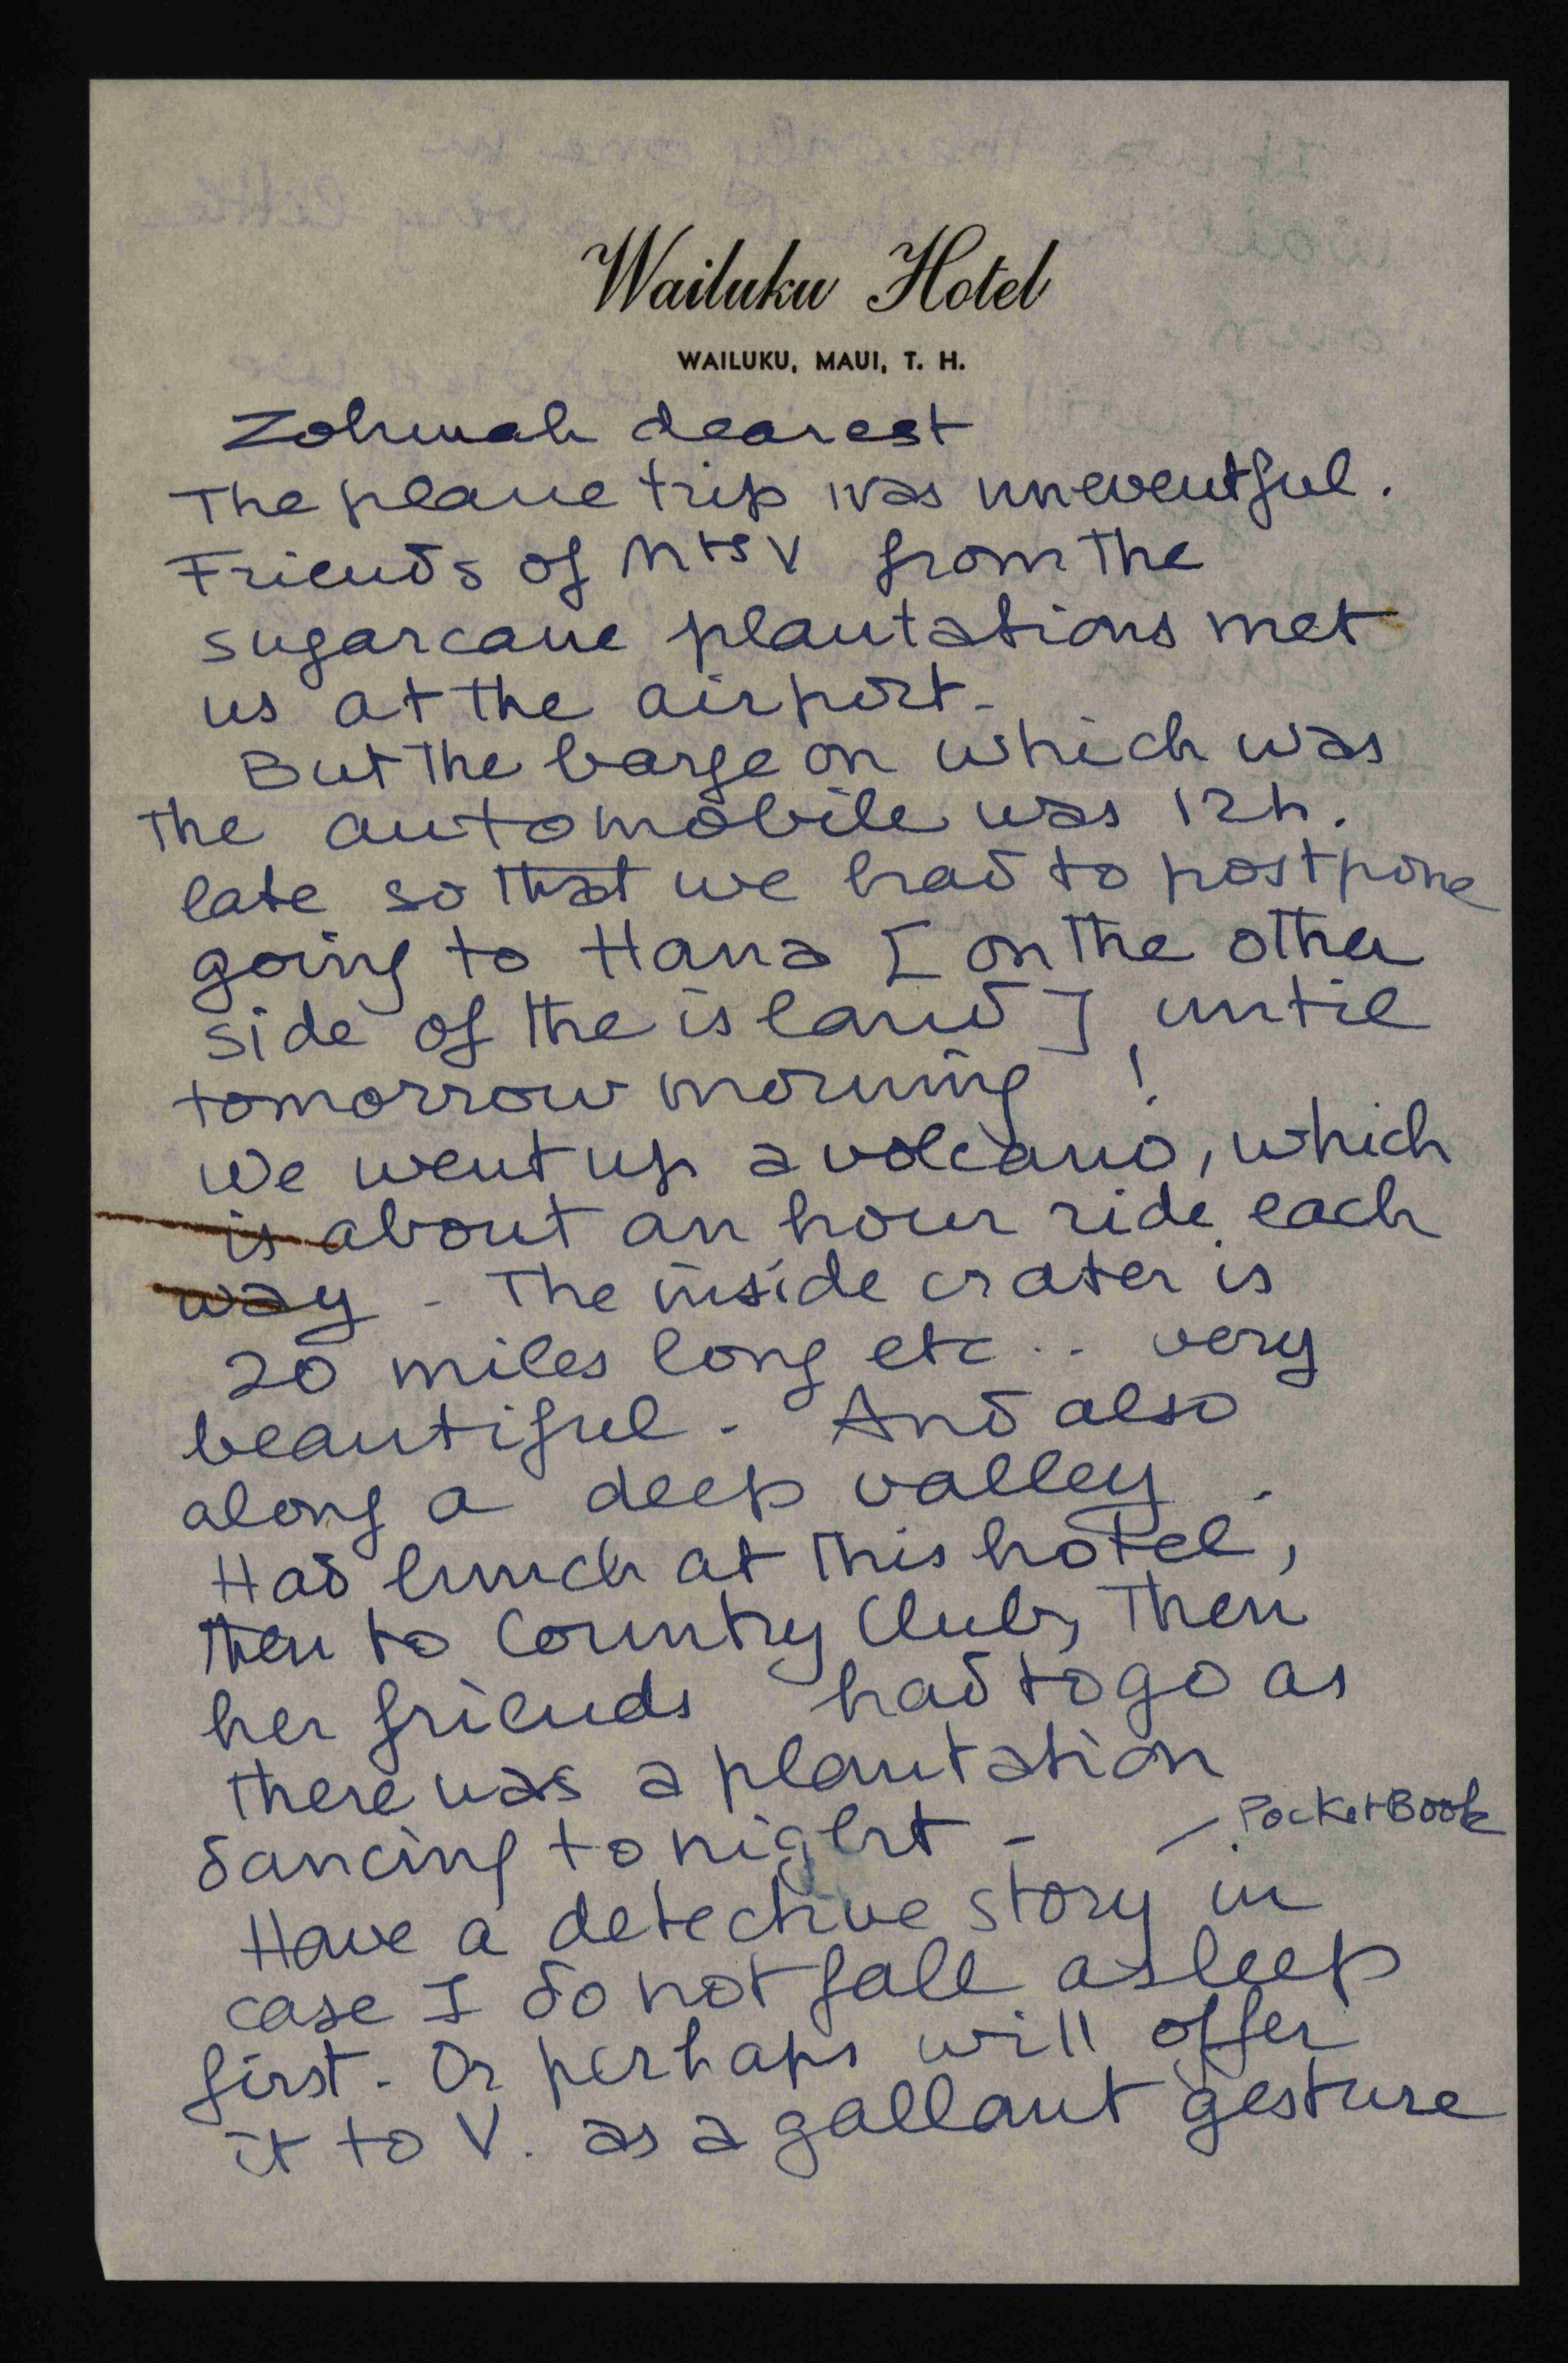 Wailuku Hotel
WAILUKU, MAUI, T. H.
Zohmah dearest
The plane trip was uneventful.
Friends of Mrs V from the
sugarcane plantations met
us at the airport.
But the barge on which was
the automobile was 12h.
late so that we had to postpone
going to Hana [on the other
side of the island] until
tomorrow morning !
We went up a volcano, which
is about an hour ride each
way - The inside crater is
20 miles long etc... very
beautiful - And also
along a deep valley .
Had lunch at this hotel,
then to Country Club, Then
her friends had to go as
there was a plantation
dancing tonight -
- PocketBook
Have a detective story in
case I do not fall asleep
first. Or perhaps will offer
it to V. as a gallant gesture